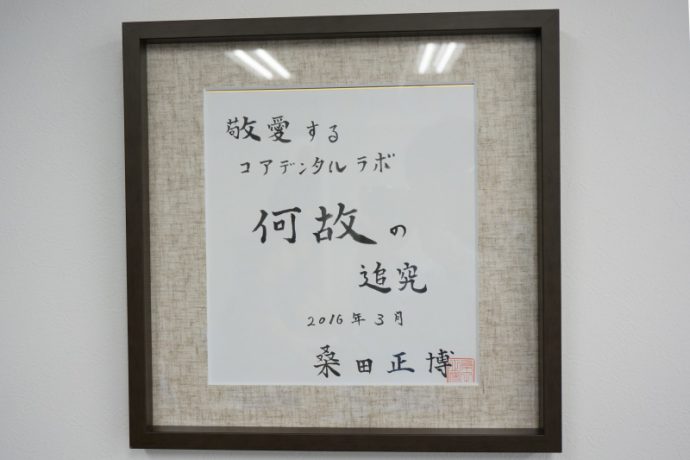 敬愛する
コアデンタルラボ
何故の
追究
2016年3月
桑田正博